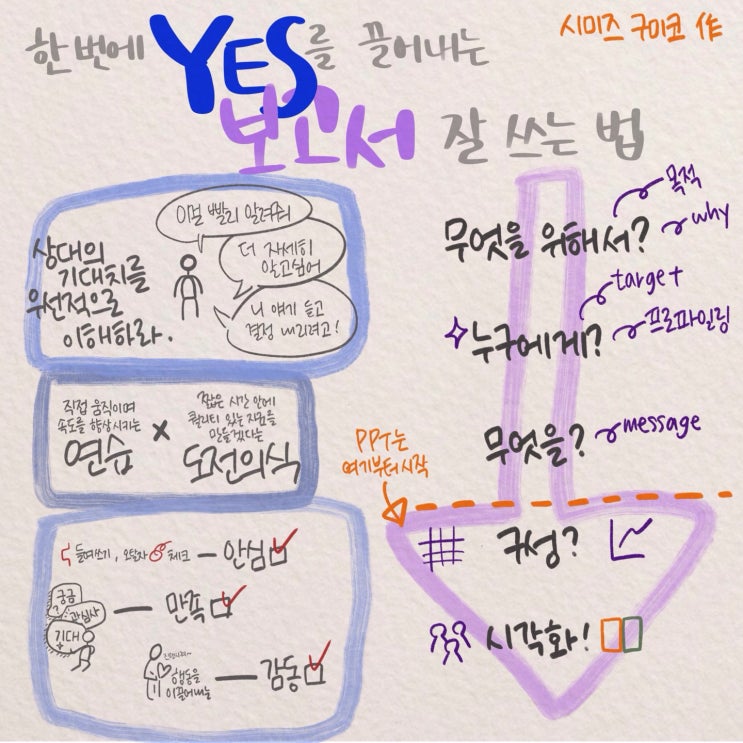 한 번에 YES를 끌어내는
보고서 잘 쓰는 법
시미즈 구미코 作
상대의
기대치를
우선적으로
이해하라.
이걸 빨리 알려줘
더 자세히
알고싶어
니 얘기 듣고
결정 내리려고!
직접 움직이며
속도를 향상시키는
연습
×
짧은 시간 안에
퀄리티 있는 자료를
만들겠다는
도전의식
들여쓰기, 오탈자 체크 — 안심
궁금
?
관심사
기대
— 만족
행동을
이끌어내는
— 감동
무엇을 위해서?
목적
why
누구에게?
target
프로파일링
무엇을?
message
PPT는
여기부터 시작
구성?
시각화!